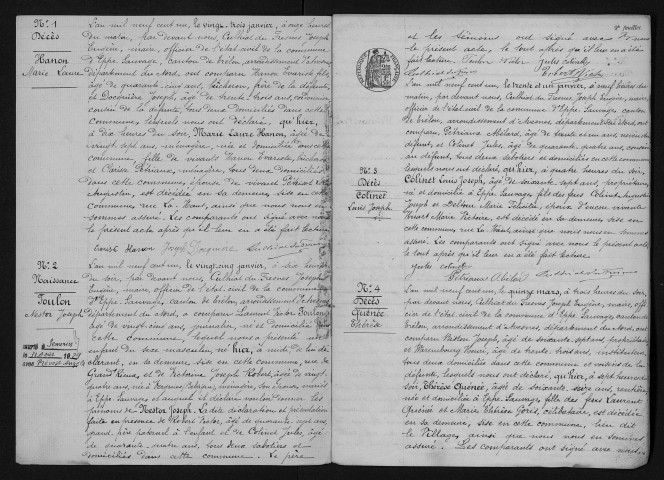 N° 1
Décès
Hanon
Marie Laure
L'an mil neuf cent un, le vingt-trois janvier, à onze heures
du matin, par devant nous, Culhiat du Fresnes Joseph
Eugène, maire, officier de l'état civil de la commune
d'Eppe-Sauvage, canton de Trélon, arrondissement d'Avesnes,
département du Nord, ont comparu Hanon Evariste, âgé
de quarante-cinq ans, bûcheron, père de la défunte,
et Joseph, âgé de trente-trois ans,
cousin de la défunte, tous deux domiciliés dans cette
commune, lesquels nous ont déclaré, qu'hier,
à dix heures du soir, Marie Laure Hanon, âgée de
vingt-sept ans, ménagère, née et domiciliée dans cette
commune, fille de vivants Hanon Evariste, bûcheron
et Claise Pétriaux, ménagère, tous deux domiciliés
dans cette commune, épouse de vivant
Augustin, est décédée en sa demeure, sise en cette
commune, rue La-Haut, ainsi que nous nous en
sommes assuré. Les comparants ont signé avec nous
le présent acte après qu'il leur en a été fait lecture.
N° 2
Naissance
Toulon
Nestor Joseph
L'an mil neuf cent un, le vingt-cinq janvier, à dix heures
du soir, par devant nous, Culhiat du Fresnes Joseph
Eugène, maire, officier de l'état civil de la commune
d'Eppe-Sauvage, canton de Trélon, arrondissement d'Avesnes,
département du Nord, a comparu Laurent Victor Toulon,
âgé de vingt-cinq ans, journalier, né et domicilié en
cette commune, lequel nous a présenté un
enfant du sexe masculin, né hier, à midi, de lui dé-
clarant, en sa demeure sise en cette commune, rue de
Grand'Rieux, et de Victorine Joseph Robert, âgée de vingt-
quatre ans, ménagère, son épouse, mariés
à Eppe-Sauvage, et auquel il a déclaré vouloir donner les
prénoms de Nestor Joseph. La dite déclaration et présentation
faite en présence de Robert Victor, âgé de cinquante-sept ans,
grand-père paternel à l'enfant et de Colinet Jules, âgé
de quarante-quatre ans, tous deux sabotiers et
domiciliés dans cette commune. Le père
2e feuillet
et les témoins ont signé avec nous
le présent acte, le tout après qu'il leur en a été
fait lecture.
N° 3
Décès
Colinet
Louis Joseph
L'an mil neuf cent un, le trente et un janvier, à neuf heures du
matin, par devant nous, Culhiat du Fresnes Joseph Eugène, maire,
officier de l'état civil de la commune d'Eppe-Sauvage, canton
de Trélon, arrondissement d'Avesnes, département du Nord, ont
comparu, Pétriaux Abélard, âgé de trente et un ans,
défunt, et Colinet Jules, âgé de quarante-quatre ans, cousin
au défunt, tous deux sabotiers et domiciliés en cette commune
lesquels nous ont déclaré, qu'hier, à quatre heures du soir,
Colinet Louis Joseph, âgé de soixante ans, propriétaire,
né et domicilié à Eppe-Sauvage, fils des feus Colinet
Joseph et Deltour Marie Félicité, époux d'encore vivante
Hiver Marie Victoire, est décédé en sa demeure, sise en
cette commune, rue La-Haut, ainsi que nous nous en sommes
assuré. Les comparants ont signé avec nous le présent acte,
le tout après qu'il leur en a été fait lecture.
Jules Colinet
N° 4
Décès
Quénée
Thérèse
L'an mil neuf cent un, le quinze mars, à trois heures du soir,
par devant nous, Culhiat du Fresnes Joseph Eugène, maire, offi-
cier de l'état civil de la commune d'Eppe-Sauvage, canton de
Trélon, arrondissement d'Avesnes, département du Nord, ont
comparu Joseph, âgé de soixante-sept ans, propriétaire,
et Henri, âgé de trente-trois ans, instituteur,
tous deux domiciliés dans cette commune et voisins de la
défunte, lesquels nous ont déclaré, qu'hier, à sept heures du
soir, Thérèse Quénée, âgée de soixante-seize ans, rentière,
née et domiciliée à Eppe-Sauvage, fille des feus Laurent
Quénée et Marie Thérèse Joris, célibataire, est décédée
en sa demeure, sise en cette commune, lieu dit
le Village, ainsi que nous nous en sommes
assuré. Les comparants ont signé avec nous